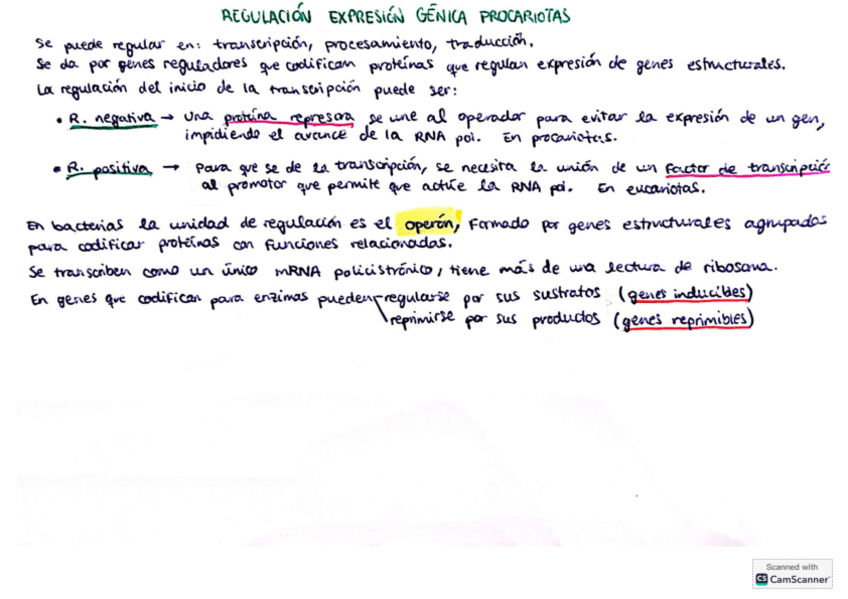 REGULACIÓN EXPRESIÓN GÉNICA PROCARIOTAS
Se puede regular en: transcripción, procesamiento, traducción.
Se da por genes reguladores que codifican proteínas que regulan expresión de genes estructurales.
La regulación del inicio de la transcripción puede ser:
• R. negativa → Una proteína represora se une al operador para evitar la expresión de un gen,
impidiendo el avance de la RNA pol. En procariotas.
• R. positiva → Para que se de la transcripción, se necesita la unión de un factor de transcripción
al promotor que permite que actúe la RNA pol. En eucariotas.
En bacterias la unidad de regulación es el operón, formado por genes estructurales agrupados
para codificar proteínas con funciones relacionadas.
Se transcriben como un único mRNA policistrónico, tiene más de una lectura de ribosoma.
En genes que codifican para enzimas pueden regularse por sus sustratos (genes inducibles)
reprimirse por sus productos (genes reprimibles)
Scanned with
CS CamScanner